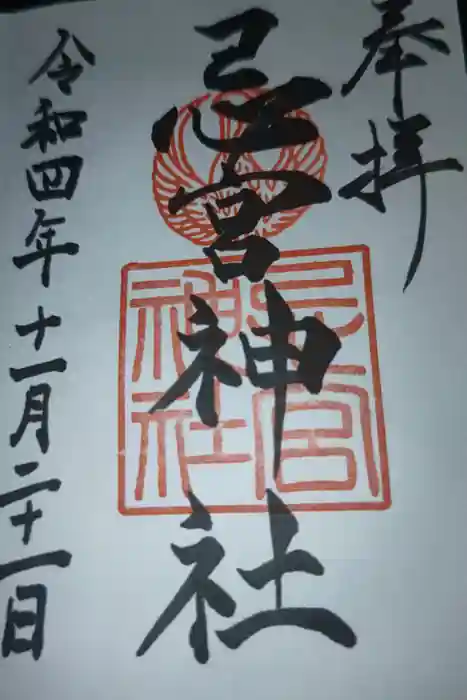 奉拝
忌宮神社
令和四年十一月二十一日
忌宮
神社